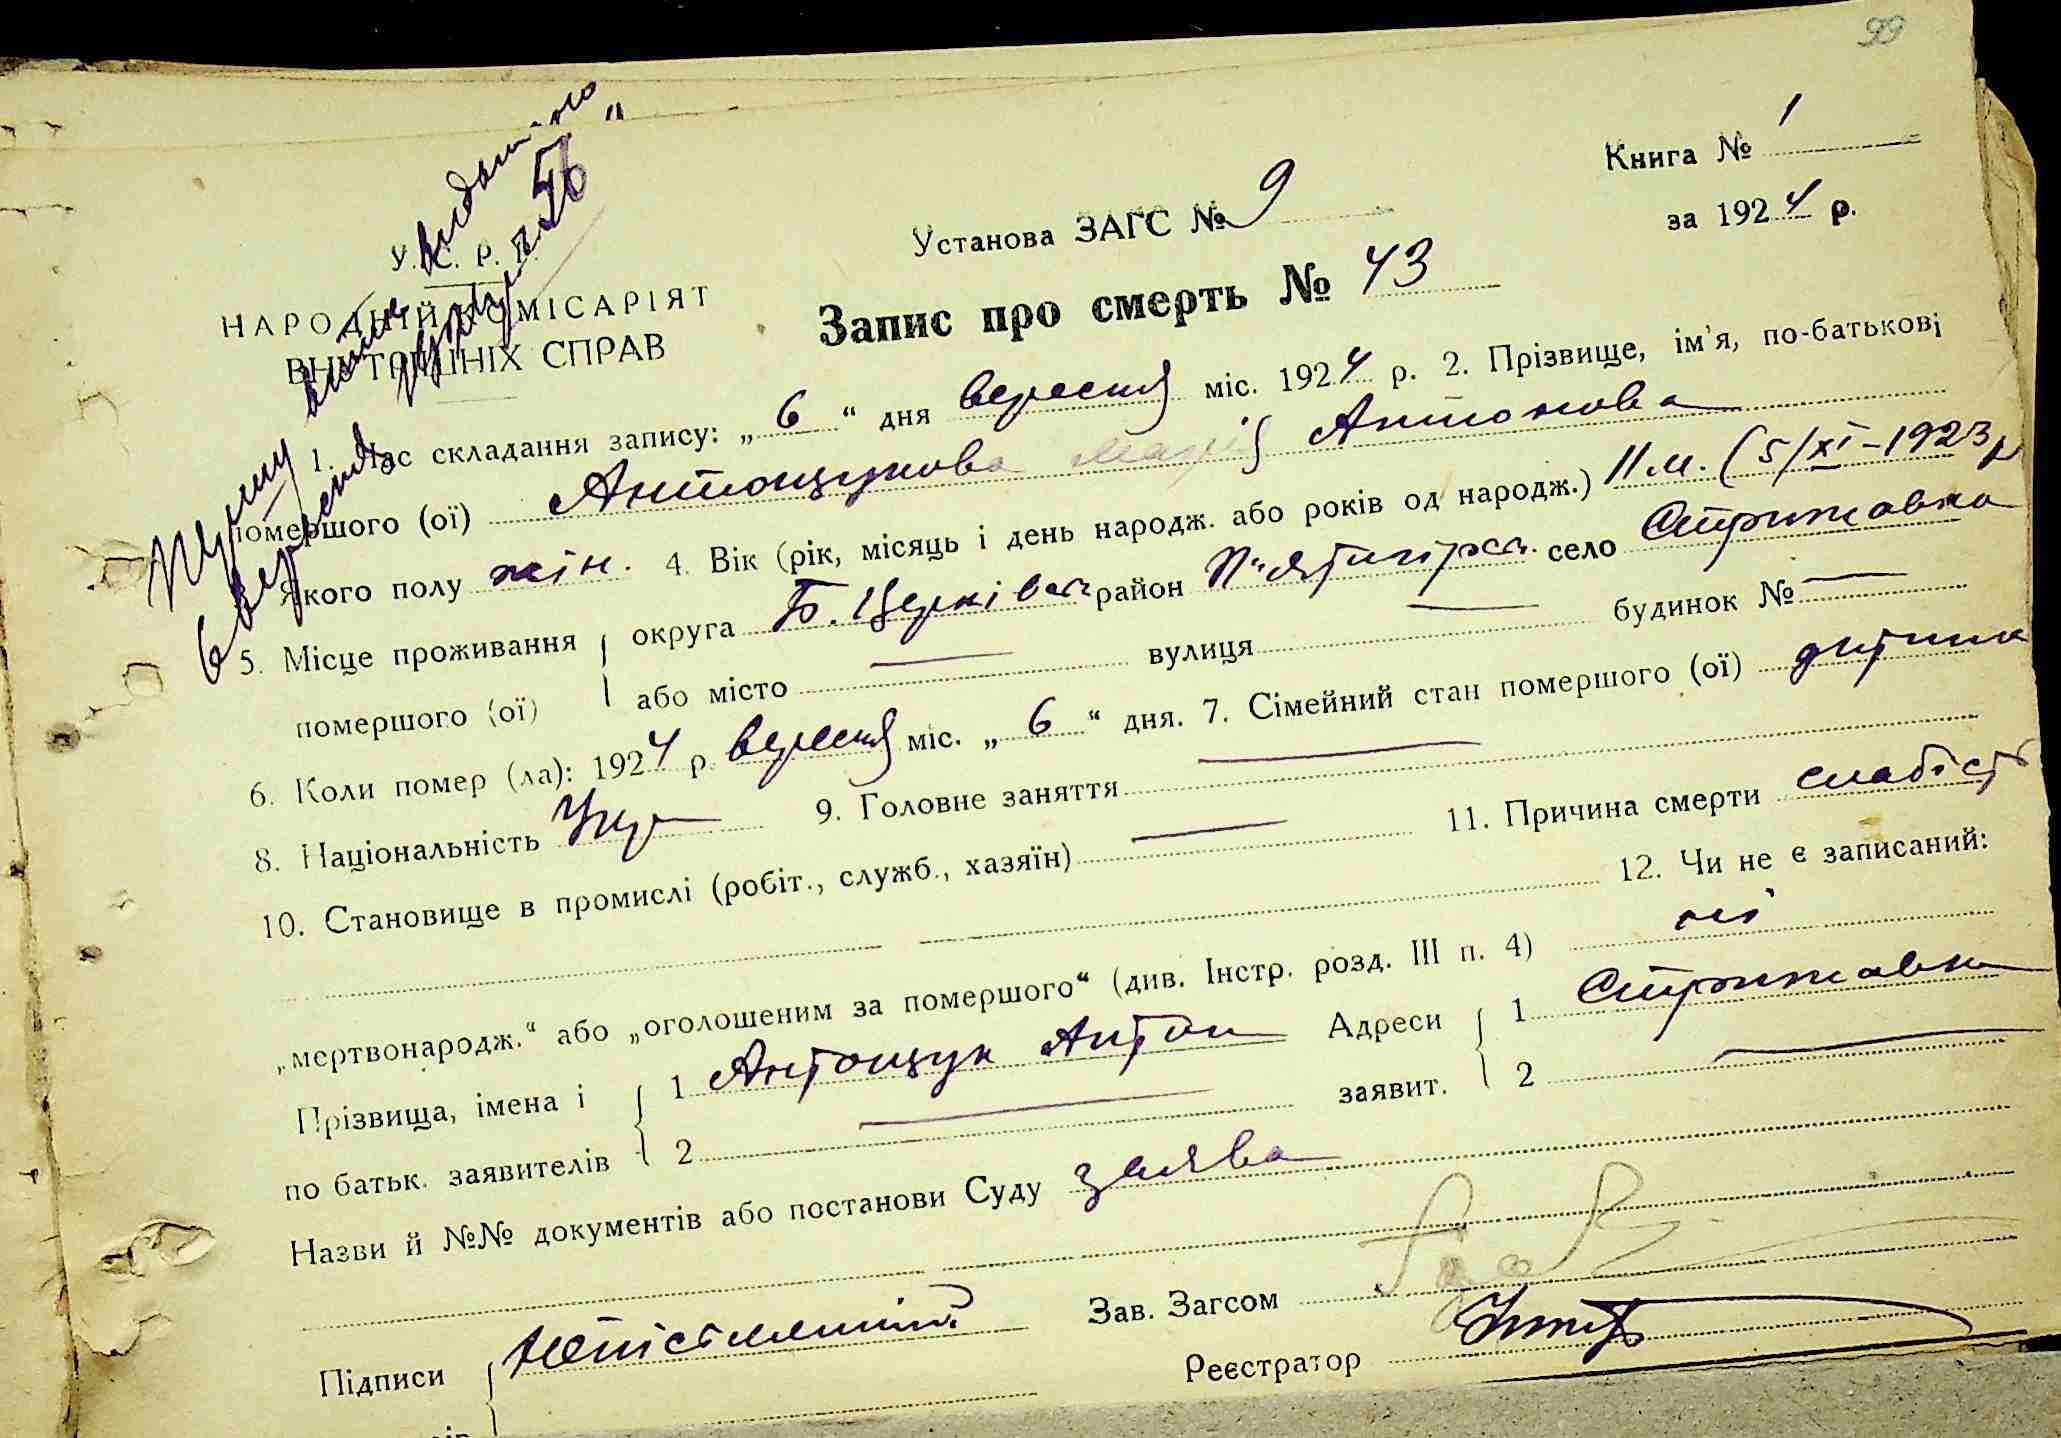 99
Книга № 1
за 1924 р.
У. С. Р. Р.
НАРОДНІЙ КОМІСАРІЯТ
ВНУТРІШНІХ СПРАВ
Установа ЗАГС № 9
Запис про смерть № 43
1. Час складання запису: „ 6 “ дня вересня міс. 1924 р. 2. Прізвище, ім'я, по-батькові
помершого (ої) Антощукова Марія Антонова
Якого полу жін. 4. Вік (рік, місяць і день народж. або років од народж.) 11 м. (5/XI-1923 р
5. Місце проживання округа Б. Церківськ район П'ятигірськ. село Стрижавка
помершого (ої) або місто — вулиця — будинок № —
6. Коли помер (ла): 1924 р. вересня міс. „ 6 “ дня. 7. Сімейний стан помершого (ої) дитина
8. Національність Укр 9. Головне заняття —
10. Становище в промислі (робіт., служб., хазяїн) — 11. Причина смерти слабість
12. Чи не є записаний:
„мертвонародж.“ або „оголошеним за помершого“ (див. Інстр. розд. III п. 4) ні
Прізвища, імена і 1 Антощук Антон Адреси 1 Стрижавка
по батьк. заявителів 2 — заявит. 2 —
Назви й №№ документів або постанови Суду заява
Зав. Загсом
Підписи Неписьменний
Реєстратор